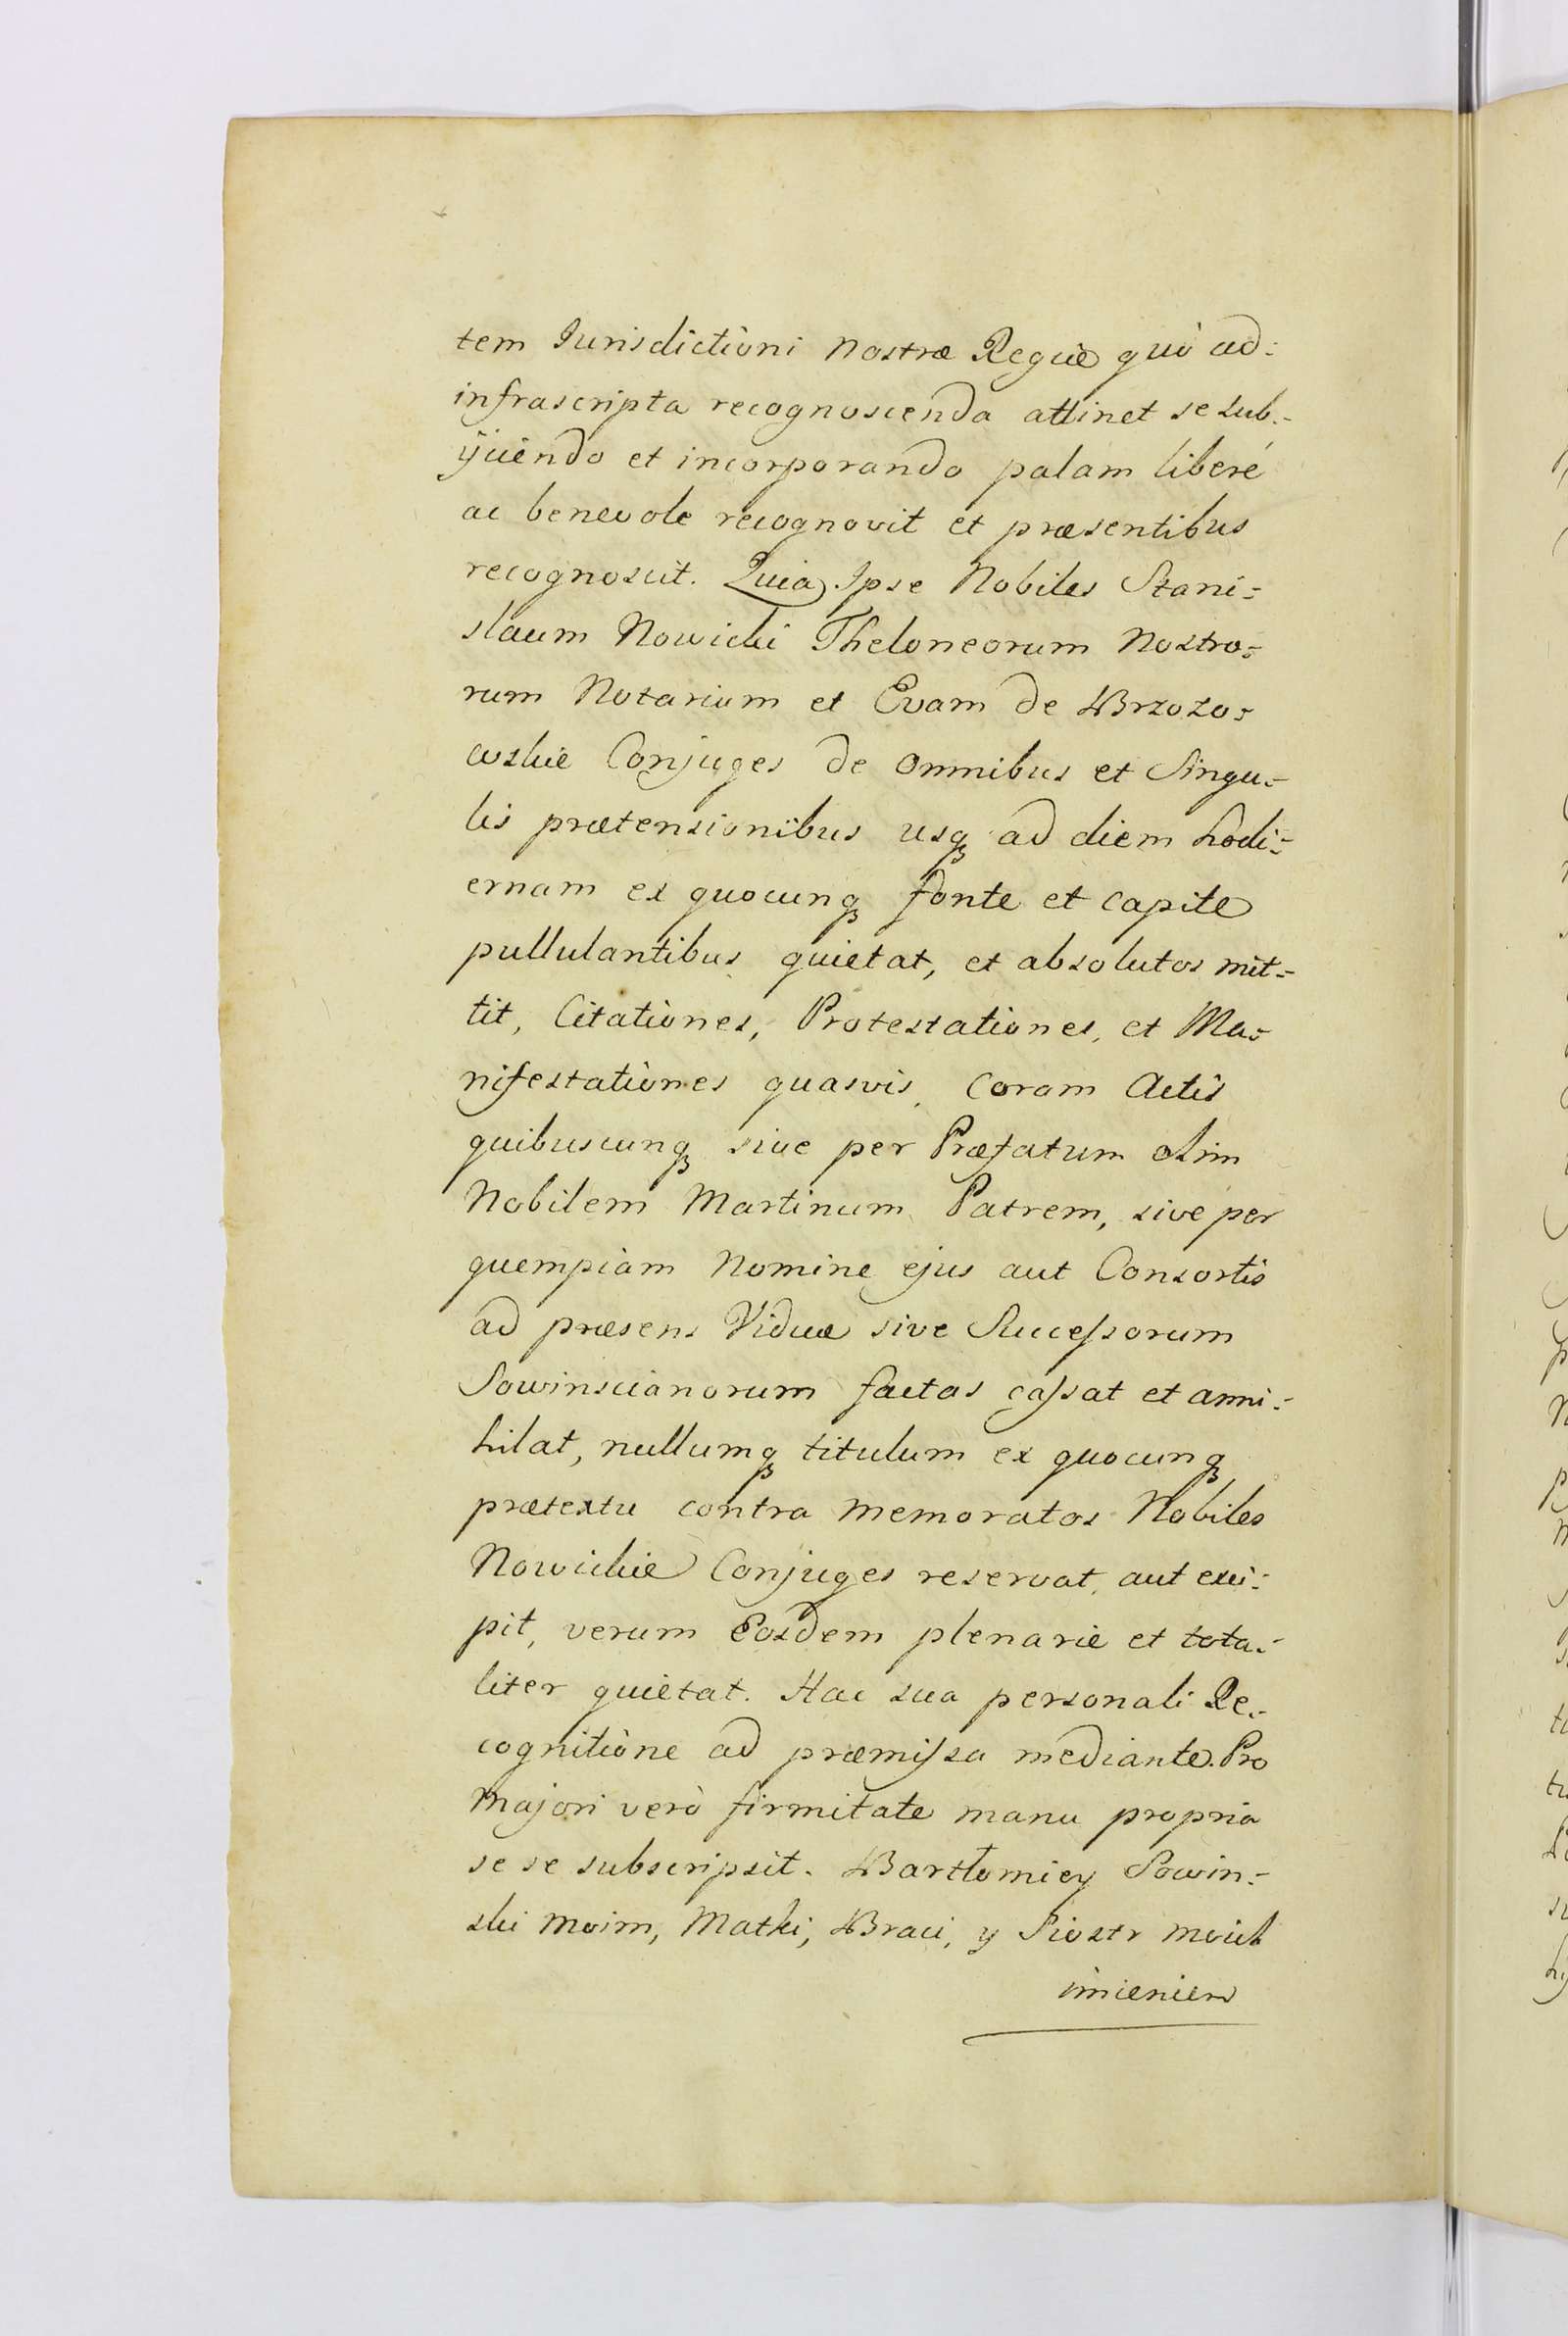 tem Jurisdictioni Nostræ Regiæ quò ad:
infrascripta recognoscenda attinet se sub:
ÿciendo et incorporando palam liberé
ac benevole recognovit et præsentibus
recognoscit. Quia Ipse Nobiles Stani:
slaum Nowicki Theloneorum Nostro:
rum Notarium et Evam de Brzozo:
wskie Conjuges de omnibus et Singu:
lis prætensionibus usq ad diem hodi:
ernam ex quocunq fonte et capite
pullulantibus quietat, et absolutos mit:
tit, Citationes, Protestationes, et Ma:
nifestationes quasvis, coram Actis
quibuscunq sive per Præfatum olim
Nobilem Martinum Patrem, sive per
quempiam Nomine ejus aut Consortis
ad præsens Viduæ sive Successorum
Sowinscianorum factas cassat et anni:
hilat, nullumq titulum ex quocunq
prætextu contra memoratos Nobiles
Nowickie Conjuges reservat, aut exci:
pit, verum Eosdem plenarie et tota:
liter quietat. Hac sua personali Re:
cognitione ad præmissa mediante. Pro
majori verò firmitate manu propria
se se subscripsit. Bartłomiey Sowin:
ski moim, Matki, Braci, y Siostr moich
imieniem